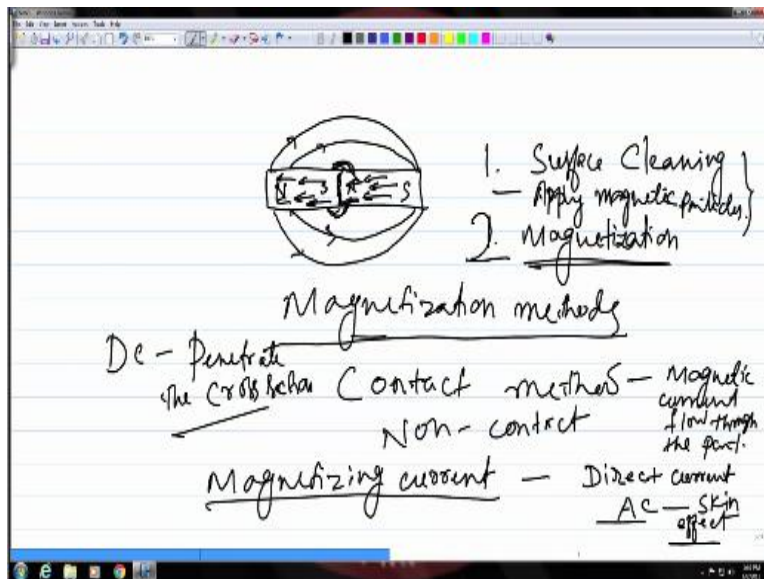 1. Surface Cleaning
— Apply magnetic particles.
2. Magnetization
N S N S
Magnetization methods
DC - Penetrate
the Cross section
Contact method — Magnetic
current
flow through
the part.
Non-contact
Magnetizing current — Direct current
AC — Skin
effect